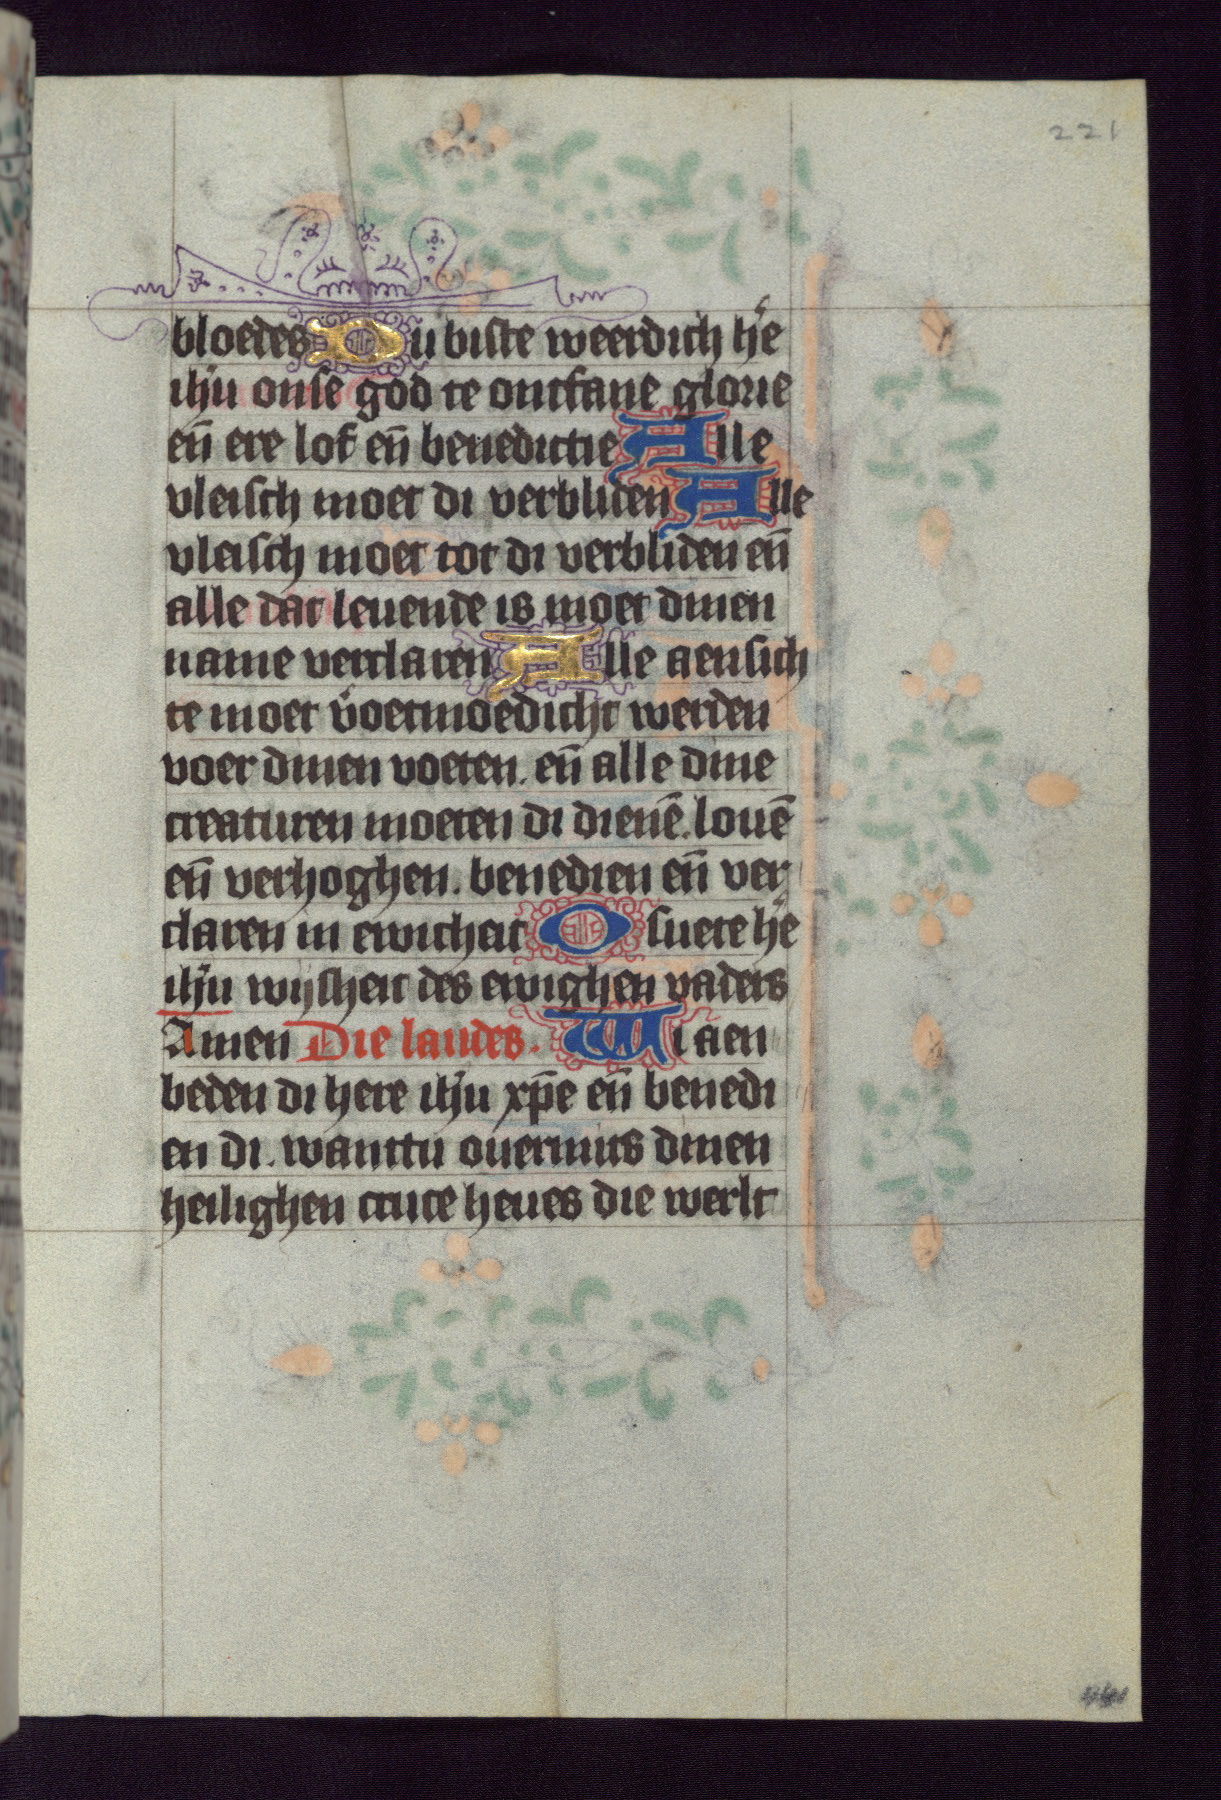 221
bloedes Du biste weerdich hr̄e
ihū onse god te ontfane glorie
en̄ ere lof en̄ benedictie Alle
vleisch moet di verbliden Alle
vleisch moet tot di verbliden en̄
alle dat leuende is moet dinen
name verclaren Alle aensich
te moet v̊oetmoedicht werden
voer dinen voeten. en̄ alle dine
creaturen moeten di dienē. louē
en̄ verhoghen. benedien en̄ ver
claren in ewicheit O suete hē
ihū wijsheit des ewighen vaders
Amen Die laudes. Wi aen
beden di here ihū xp̄e en̄ benedi
en di. wanttu ouermits dinen
heilighen cruce heues die werlt